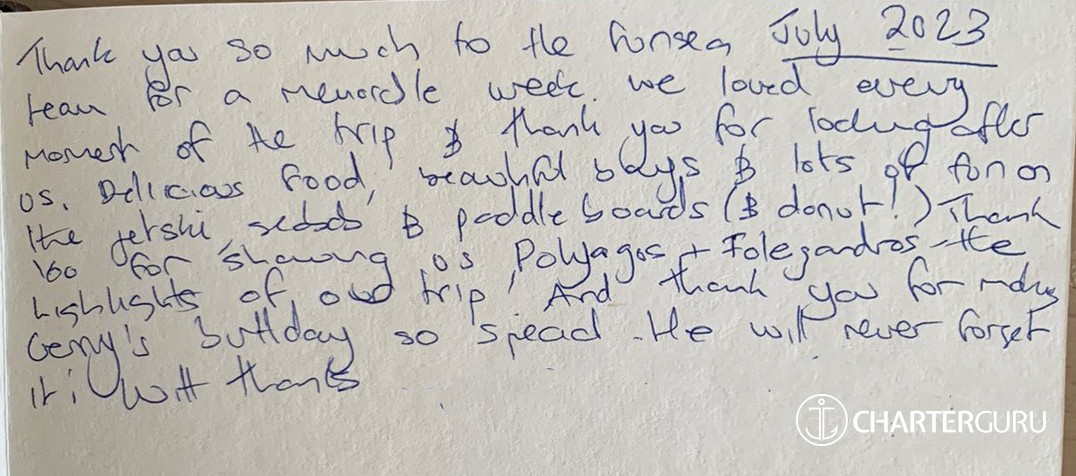 Thank you so much to the Funsea July 2023
team for a memorable week. We loved every
moment of the trip & thank you for looking after
us. Delicious food, beautiful bays & lots of fun on
the jetski, seabob & paddle boards (& donut!) Thank
you for showing us Polyagos + Folegandros - the
highlights of our trip! And thank you for making
Gerry's birthday so special. He will never forget
it! With thanks
CHARTERGURU